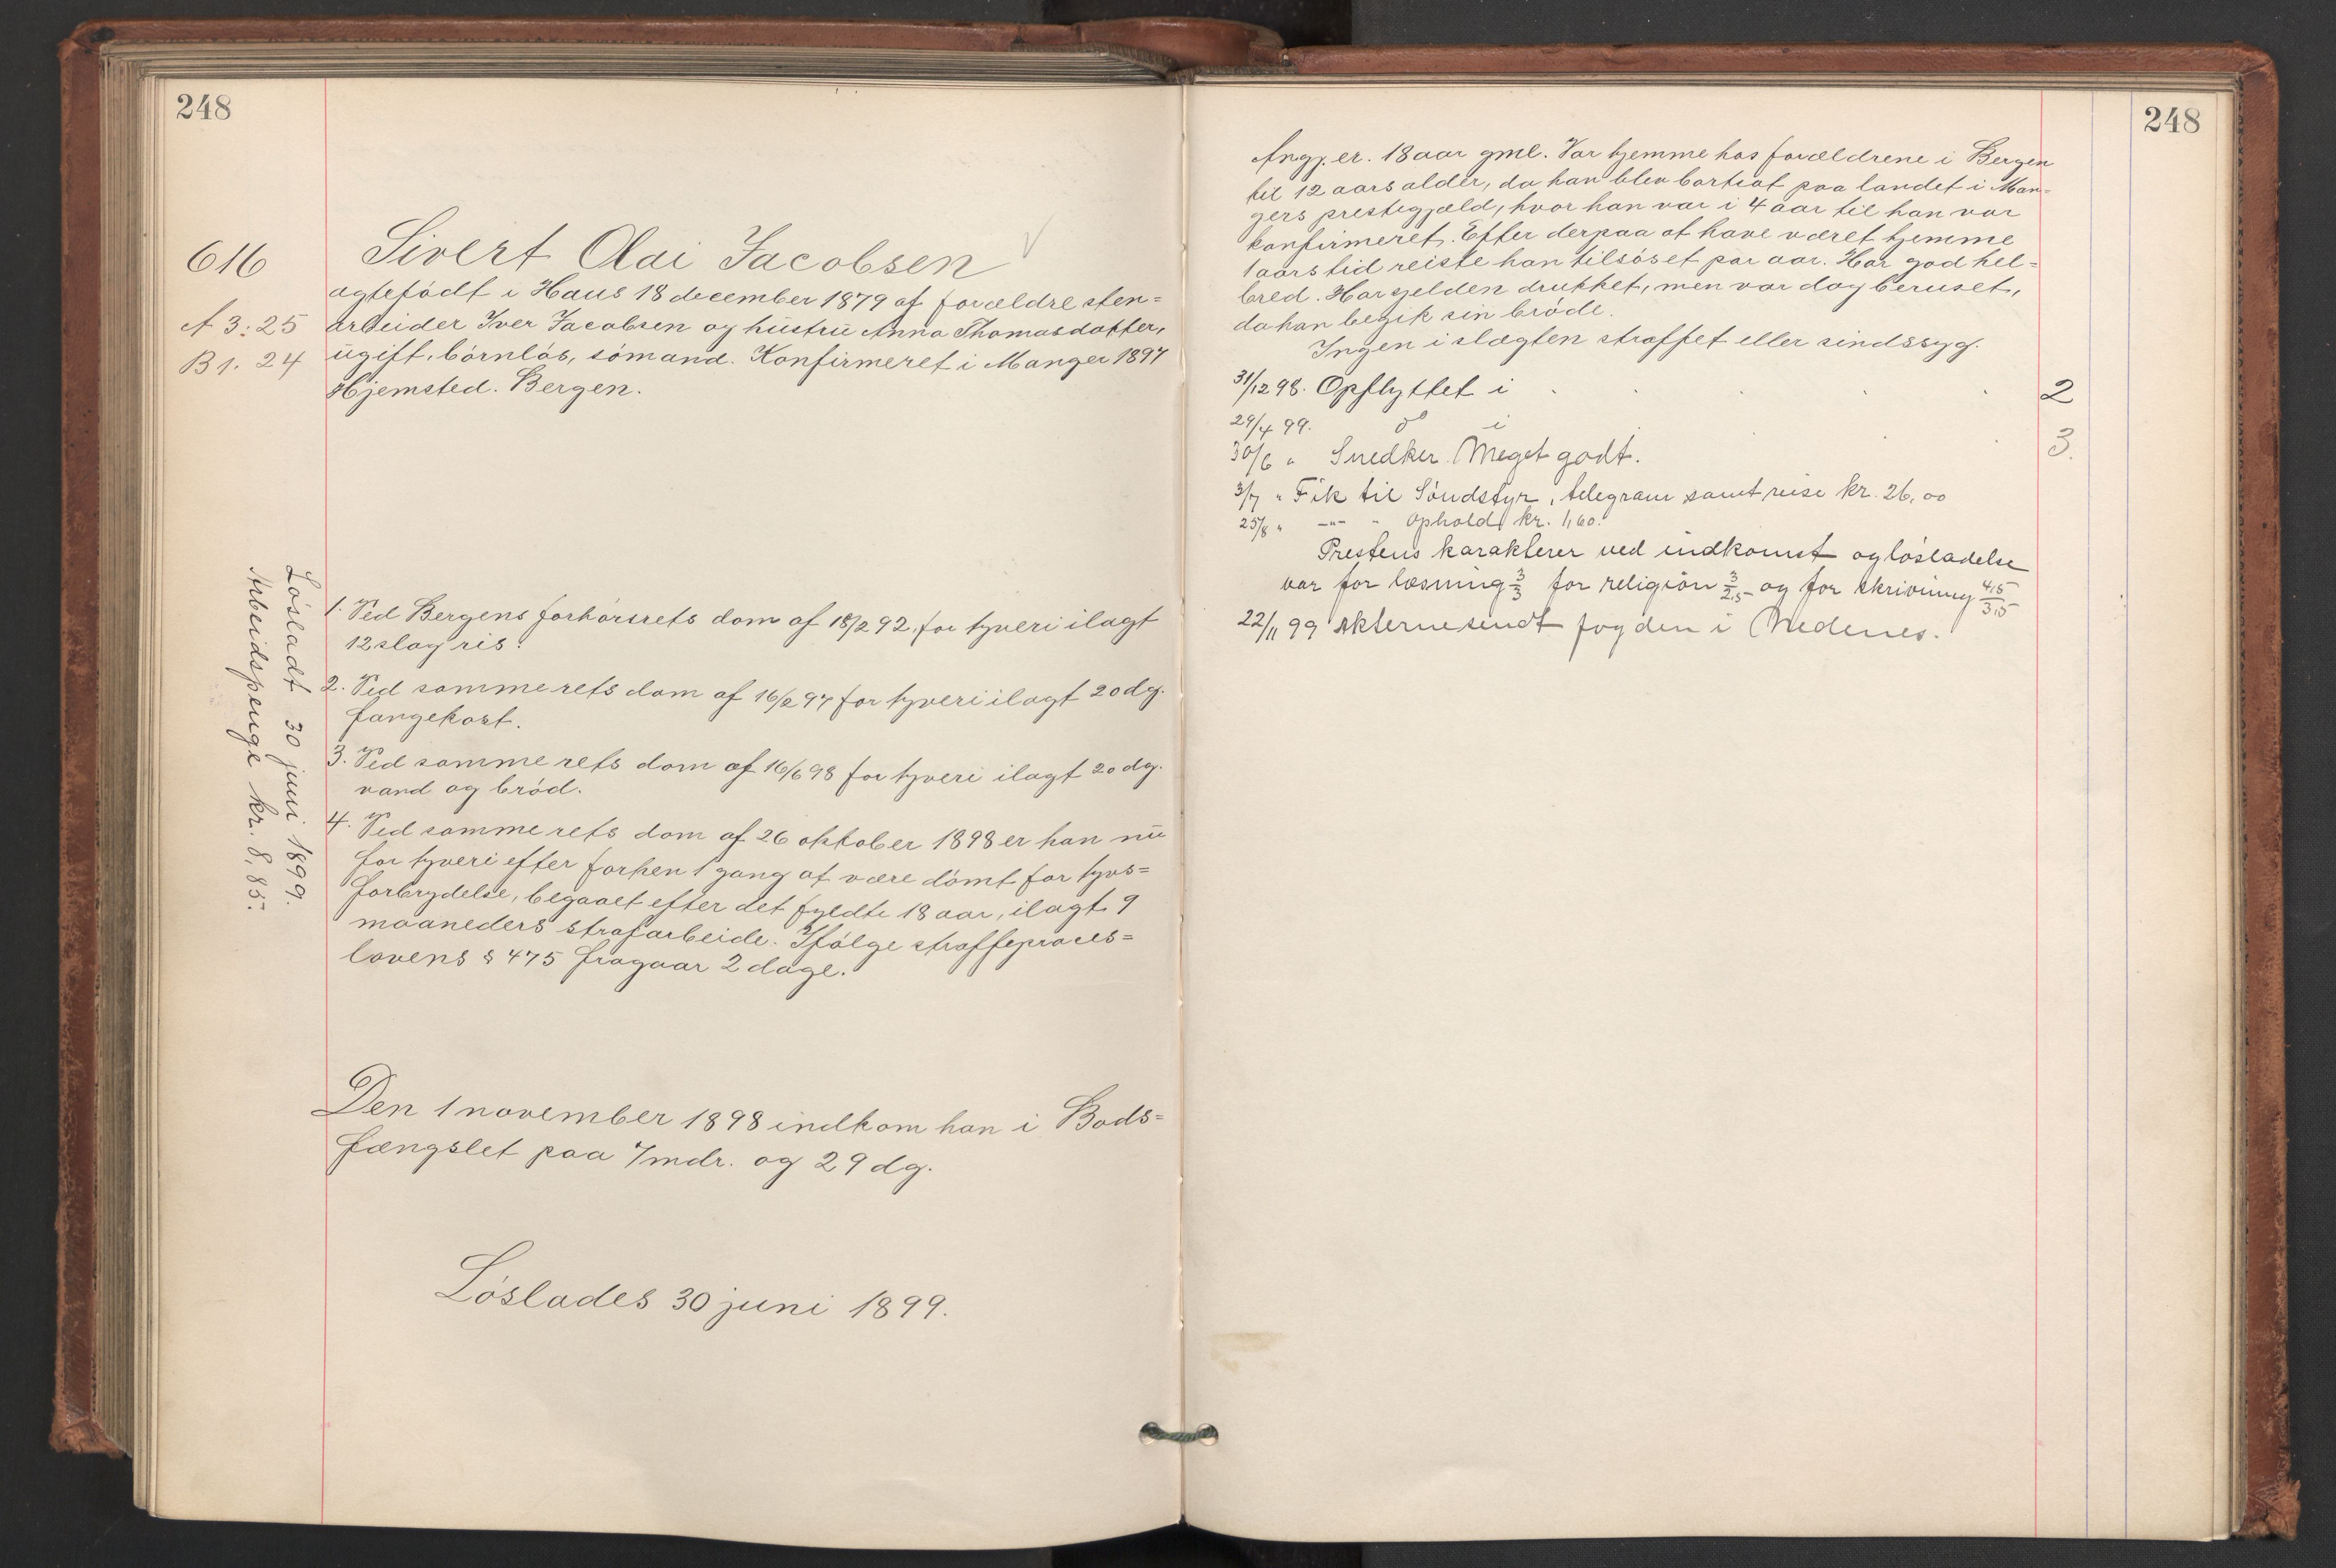 248
616
A 3: 25
B 1. 24
Sivert Olai Jacobsen
ægtefödt i Haus 18 december 1879 af forældre sten=
arbeider Iver Jacobsen og hustru Anna Thomasdatter,
ugift, börnlös, sömand. Konfirmeret i Manger 1897
Hjemsted. Bergen.
1. Ved Bergens forhörsrets dom af 18/2 92, for tyveri ilagt
12 slag ris.
2. Ved samme rets dom af 16/2 97 for tyveri ilagt 20 dg.
fangekost.
3. Ved samme rets dom af 16/6 98 for tyveri ilagt 20 dg.
vand og bröd.
4. Ved samme rets dom af 26 oktober 1898 er han nu
for tyveri efter forhen 1 gang at være dömt for tyvs=
forbrydelse, begaaet efter det fyldte 18 aar, ilagt 9
maaneders strafarbeide. Ifölge straffeproces=
lovens § 475 fragaar 2 dage.
Den 1 november 1898 indkom han i Bods=
fængslet paa 7 mdr. og 29 dg.
Löslades 30 juni 1899.
Lösladt 30 juni 1899.
Arbeidspenge kr. 8,85.
248
Angj. er. 18 aar gml. Var hjemme hos forældrene i Bergen
til 12 aars alder, da han blev bortsat paa landet i Man=
gers prestegjæld, hvor han var i 4 aar til han var
konfirmeret. Efter derpaa at have været hjemme
1 aars tid reiste han tilsös et par aar. Har god hel=
bred. Har sjelden drukket, men var dog beruset,
da han begik sin bröde.
Ingen i slægten straffet eller sindssyg.
31/12 98. Opflyttet i . . . . 2
29/4 99. do i . . . 3.
30/6 " Snedker. Meget godt.
3/7 " Fik til Söndstyr, telegram samt reise kr. 26,00
25/8 " —"— " Ophold kr. 1,60.
Prestens karakterer ved indkomst og lösladelse
var for læsning 3/3 for religion 3/2,5 og for skrivning 4,5/3,5
22/11 99 Akterne sendt fogden i Nedenes.